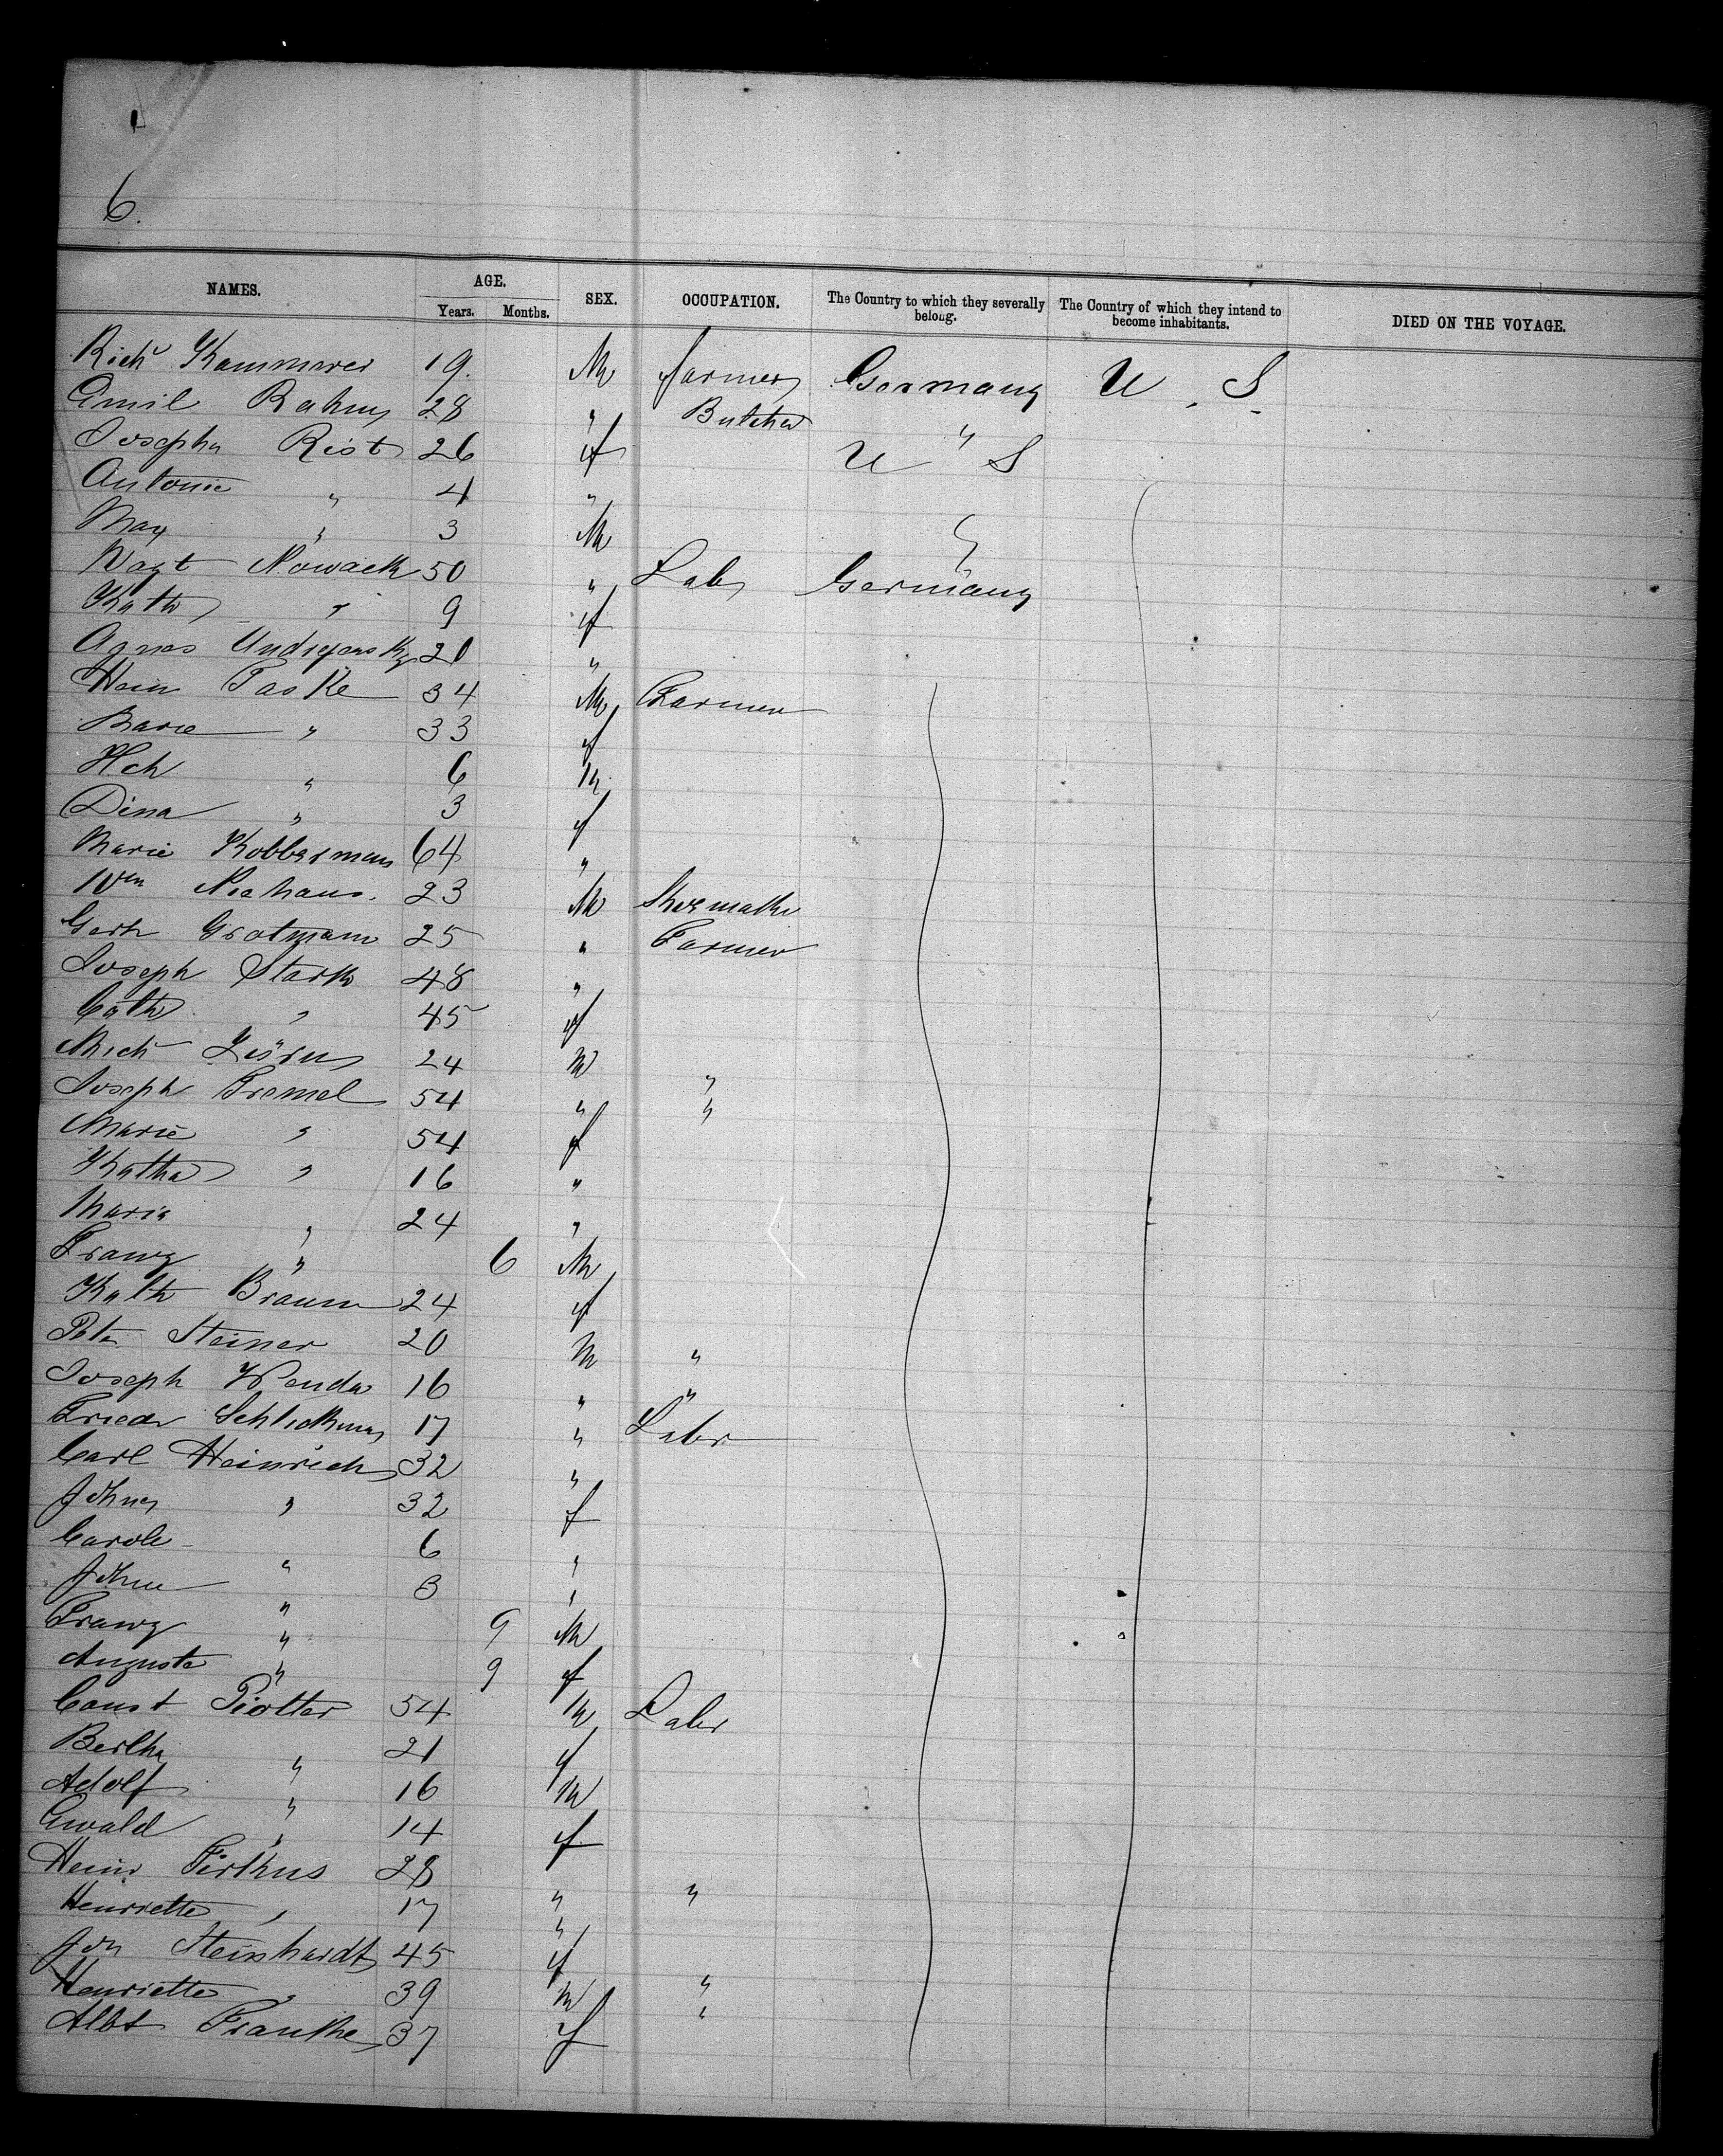 6.
NAMES. AGE. Years. Months. SEX. OCCUPATION. The Country to which they severally belong. The Country of which they intend to become inhabitants. DIED ON THE VOYAGE.
Richd Kammerer 19. M farmer Germany U. S.
Emil Rahm 28 " Butcher "
Josepha Rist 26 f U S
Antonie " 4 "
Max " 3 M
Nowack 50 " Labr Germany
Kath " 9 f
Agnes 20 "
Hein Taske 34 M Farmer
Marie " 33 f
Hch " 6 M
Dina " 3 f
Marie Kobbermann 64 "
Wm Niehaus. 23 M Shoemaker
Gerh Grotmann 25 " Farmer
Joseph Stark 48 "
Cath " 45 f
Mich 24 M "
Joseph Tremel 54 " "
Marie " 54 f
Katha " 16 "
Maria " 24 "
Franz " 6 M
Kath Braun 24 f
Pete Steiner 20 M "
Joseph Wenda 16 " "
Friedr 17 " Labr
Carl Heinrich 32 "
" 32 f
Carole " 6 "
" 3 "
Franz " 9 M
Auguste " 9 f
Const Piotter 54 M Labr
Bertha " 21 f
Adolf " 16 M
Ewald " 14 f
Heinr 28 " "
Henriette " 17 "
Joh Steinhardt 45 f "
Henriette " 39 M "
Albt Franke 37 f